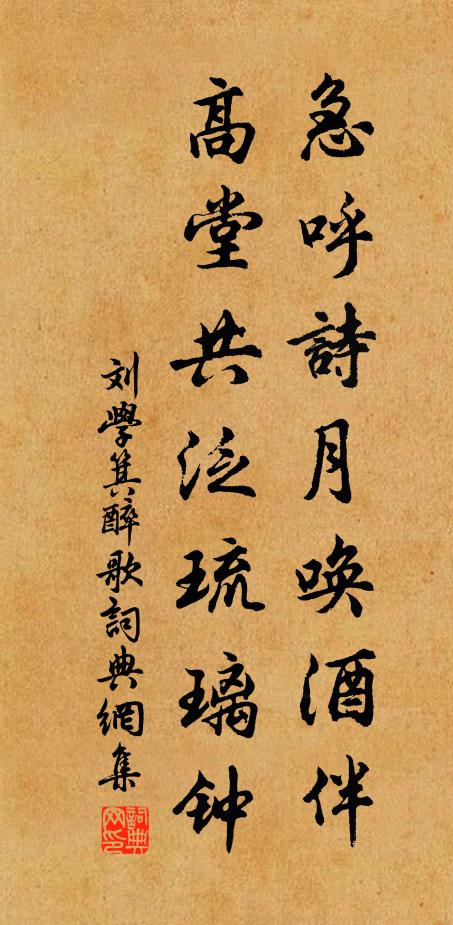 急呼詩月喚酒伴
高堂共泛琉璃钟
刘學箕醉歌詞典網集
詞典网印